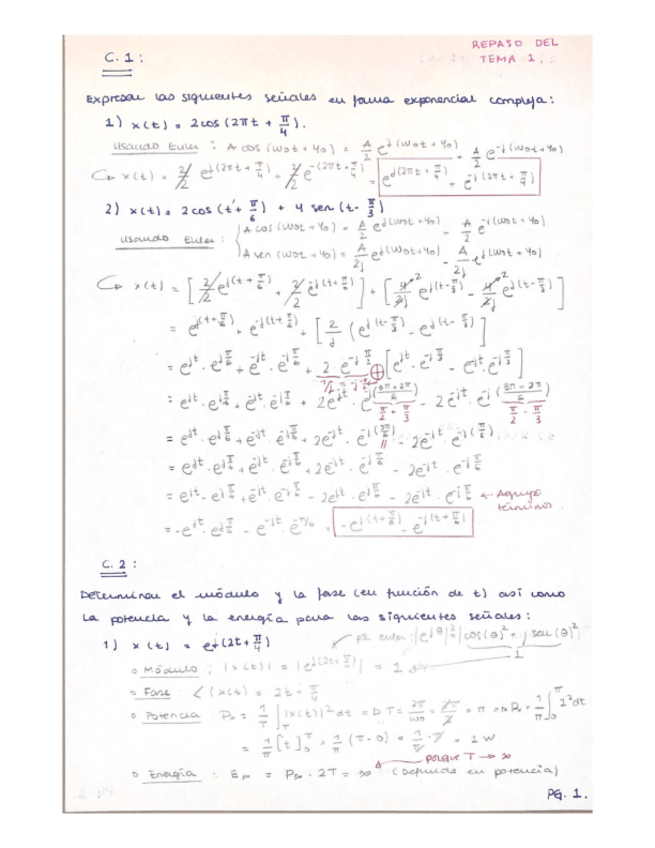 REPASO DEL
TEMA 1.
C. 1 :
Expresar las siguientes señales en forma exponencial compleja :
1) x(t) = 2cos (2πt + π/4).
Usando Euler : A cos (ω0t + φ0) = A/2 e^j(ω0t + φ0) + A/2 e^-j(ω0t + φ0)
↳ x(t) = 2/2 e^j(2πt + π/4) + 2/2 e^-(2πt + π/4) = e^j(2πt + π/4) + e^-j(2πt + π/4)
2) x(t) = 2 cos (t + π/6) + 4 sen (t - π/3)
Usando Euler : A cos (ω0t + φ0) = A/2 e^j(ω0t + φ0) + A/2 e^-j(ω0t + φ0)
A sen (ω0t + φ0) = A/2j e^j(ω0t + φ0) - A/2j e^j(ω0t + φ0)
↳ x(t) = [ 2/2 e^j(t + π/6) + 2/2 e^-j(t + π/6) ] + [ 4/2j e^j(t - π/3) - 4/2j e^j(t - π/3) ]
= e^j(t + π/6) + e^-j(t + π/6) + [ 2/j ( e^j(t - π/3) - e^j(t - π/3) ]
= e^jt · e^jπ/6 + e^-jt · e^-jπ/6 + 2 · e^-jπ/2 [ e^jt · e^-jπ/3 - e^-jt · e^jπ/3 ]
= e^jt · e^jπ/6 + e^-jt · e^-jπ/6 + 2e^jt · e^-j(3π+2π/6) - 2e^-jt · e^-j(3π-2π/6)
π/2 + π/3 π/2 - π/3
= e^jt · e^jπ/6 + e^-jt · e^-jπ/6 + 2e^-jt · - 2e^-jt · e^-j(π/6)
= e^jt · e^jπ/6 + e^-jt · e^-jπ/6 + 2e^-jt · - 2e^-jt · e^-jπ/6
= e^jt · e^jπ/6 + e^-jt · e^-jπ/6 - 2e^jt · e^jπ/6 - 2e^-jt · e^-jπ/6 ← Agrupo
términos.
= -e^jt · e^jπ/6 - e^-jt · e^-π/6 = -e^j(t + π/6) - e^-j(t + π/6)
C. 2 :
Determinar el módulo y la fase (en función de t) así como
la potencia y la energía para las siguientes señales :
1) x(t) = e^j(2t + π/4)
por euler: |e^jθ|² = |cos(θ)² + j sen(θ)²
1
∘ Módulo : |x(t)| = |e^j(2t + π/4)| = 1
∘ Fase : ∠(x(t) = 2t + π/4
∘ Potencia : P∞ = 1/T ∫T |x(t)|² dt => T = 2π/ω0 = 2π/2 = π => P∞ = 1/π ∫0^π 1² dt
= 1/π [t]0^π = 1/π (π - 0) = 1/π · π = 1 W
porque T → ∞
∘ Energía : E∞ = P∞ · 2T = ∞ (Definida en potencia)
PG. 1.